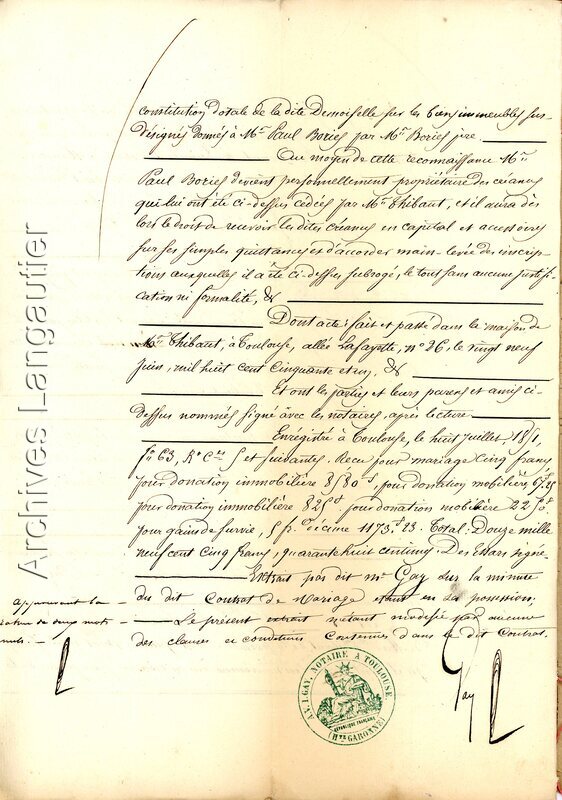 constitution dotale de la dite Demoiselle sur les biens immeubles sus-
désignés donnés à Mr. Paul Bories par Mr. Bories père.
Au moyen de cette reconnaissance Mr.
Paul Bories devient personnellement propriétaire des créances
qui lui ont été ci-dessus cédées par Mr. Thibaut, et il aura dès
lors le droit de recevoir les dites créances en capital et accessoires
sur ses simples quittances et d'accorder main-levée des inscrip-
tions auxquelles il a été ci-dessus subrogé, le tout sans aucune justifi-
cation ni formalité, &
Dont acte: fait et passé dans la maison de
Mr. Thibaut, à Toulouse, allée Lafayette, no. 26, le vingt neuf
Juin, mil huit cent cinquante et un, &
Et ont les parties et leurs parens et amis ci-
dessus nommés signé avec les notaires, après lecture
Enregistré à Toulouse, le huit juillet 1851,
fo. 63, Ro. Ces. 5 et suivantes. Reçu pour mariage cinq francs
pour donation immobilière pour donation mobilière
pour donation immobilière 825f pour donation mobilière
pour gains de survie, 5 f. Décime 1173f 23. Total: Douze mille
neuf cent cinq francs, quarante huit centimes. Des Essars signé
Extrait par moi dit Mr Gay sur la minute
du dit Contrat de Mariage étant en sa possession.
Le présent extrait n'étant modifié par aucune
des clauses et conditions contenues dans le dit contrat.
Approuvant la
rature de deux mots
nuls. —
Gay
AX. J. GAY, NOTAIRE A TOULOUSE
RÉPUBLIQUE FRANÇAISE
(HTE GARONNE)
Archives Langautier